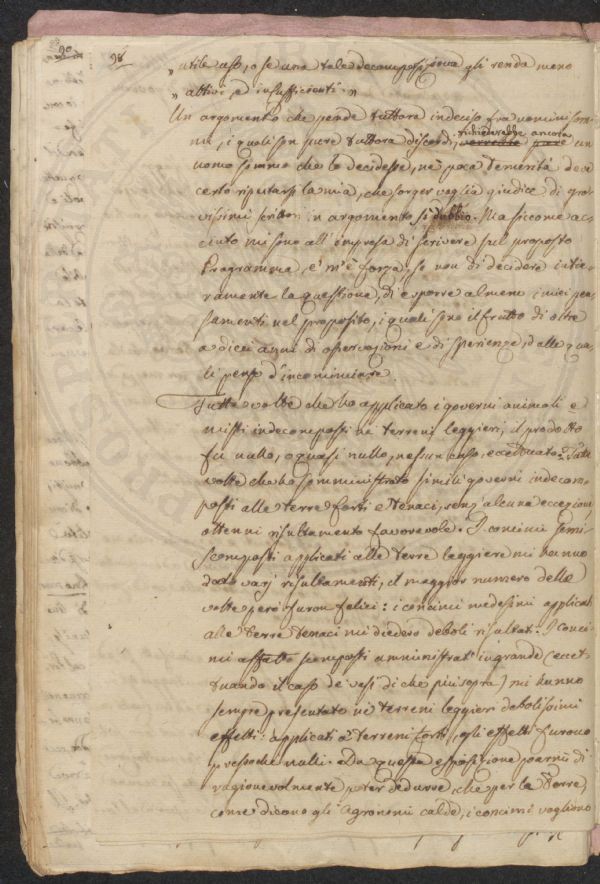 90 98
„ utile asso, o se una tale decomposizione gli renda meno
„ attivi, ed insufficienti. „
Un argomento che pende tuttora indeciso fra uomini som-
mi, i quali son pure tuttora discordi, richiederebbe ancora un
uomo sommo che lo decidesse, nè poca temerità deve
certo riputarsi la mia, che sorger voglia giudice di gra-
vissimi scrittori in argomento sì dubbio. Ma siccome ac-
cinto mi sono all'impresa di scrivere sul proposto
Programma, e m'è forza, se non di decidere intie-
ramente la questione, di esporre almeno i miei pen-
samenti nel proposito, i quali sono il frutto di oltre
a dieci anni di osservazioni e di sperienze, dalle qua-
li penso d'incominciare.
Tutte volte che ho applicato i governi animali e
misti indecomposti ne' terreni leggieri, il prodotto
fu nullo, o quasi nullo, nessun caso, eccettuato. Tutte
volte che ho somministrato simili governi indecom-
posti alle terre forti e tenaci, senz'alcuna eccezione
ottenni risultamento favorevole. I concimi semi-
scomposti applicati alle terre leggiere mi hanno
dato varj risultamenti, il maggior numero delle
volte però furon felici: i concimi medesimi applicati
alle terre tenaci mi diedero deboli risultati. I conci-
mi affatto scomposti amministrati in grande (eccet-
tuando il caso de' vasi di che più sopra) mi hanno
sempre presentato ne' terreni leggieri debolissimi
effetti: applicati a' terreni forti, gli effetti furono
pressochè nulli. Da questa esposizione parmi di
ragionevolmente poter dedurre, che per le Terre,
come dicono gli Agronomi calde, i concimi vogliono